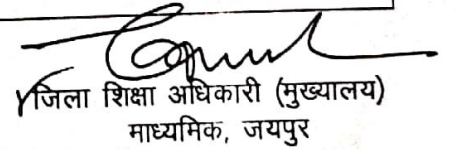 जिला शिक्षा अधिकारी (मुख्यालय)
माध्यमिक, जयपुर